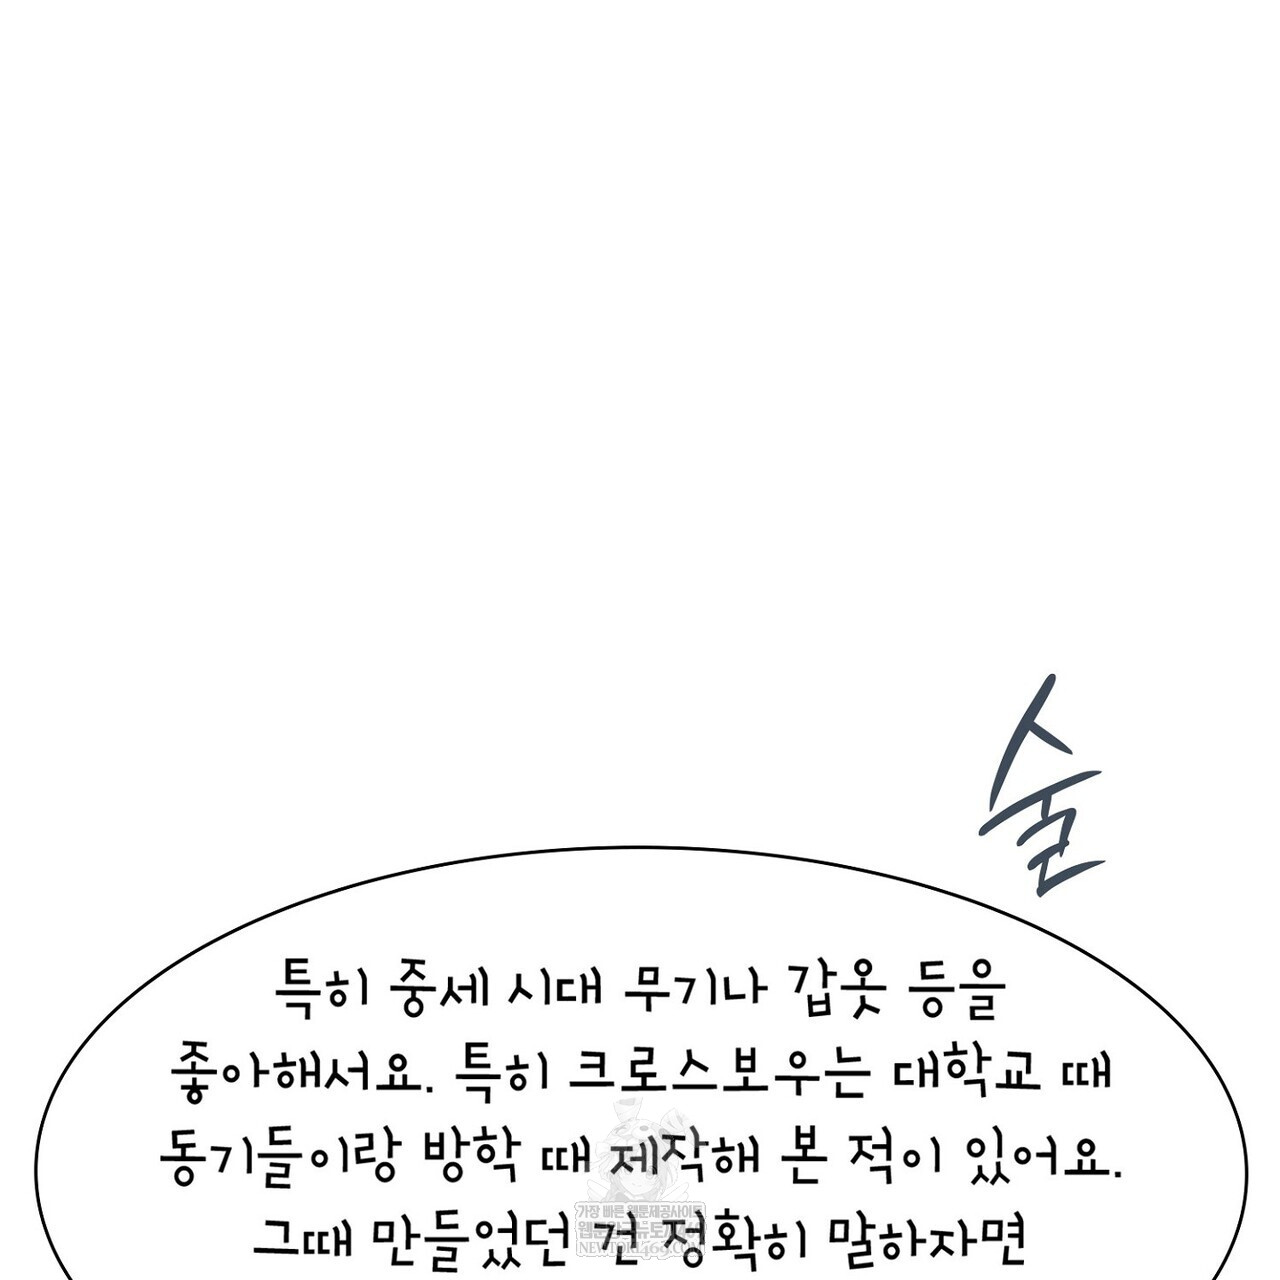 술
특히 중세 시대 무기나 갑옷 등을
좋아해서요. 특히 크로스보우는 대학교 때
동기들이랑 방학 때 제작해 본 적이 있어요.
그때 만들었던 건 정확히 말하자면
가장 빠른 웹툰제공사이트
NEWTOKI469.COM